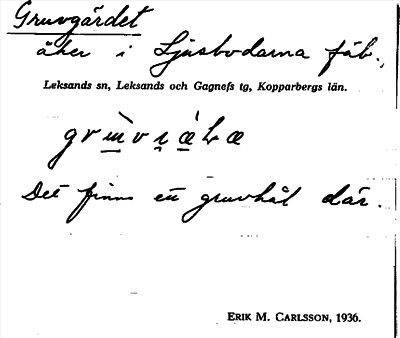 Gruvgärdet
åker i Ljusbodarna fäb.,
Leksands sn, Leksands och Gagnefs tg, Kopparbergs län.
Det finns en gruvhål där.
ERIK M. CARLSSON, 1936.